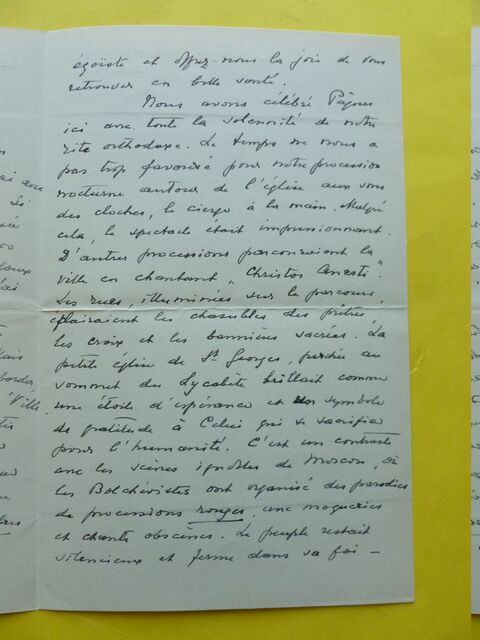 égoïste et offrez-nous la joie de vous
retrouver en belle santé.
Nous avons célébré Pâques
ici avec toute la solennité de notre
rite orthodoxe. Le temps ne nous a
pas trop favorisé pour notre procession
nocturne autour de l'église aux sons
des cloches, le cierge à la main. Malgré
cela, le spectacle était impressionnant.
D'autres processions parcouraient la
ville en chantant „Christos Anesti".
Les rues, illuminées sur le parcours,
éclairaient les chasubles des prêtres,
les croix et les bannières sacrées. La
petite église de St Georges, perchée au
sommet du Lycabète brillait comme
une étoile d'espérance et un symbole
de gratitude à Celui qui se sacrifia
pour l'humanité. C'est un contraste
avec les scènes ignobles de Moscou, où
les Bolchévistes ont organisé des parodies
de processions rouges, avec moqueries
et chants obscènes. Le peuple restait
silencieux et ferme dans sa foi —